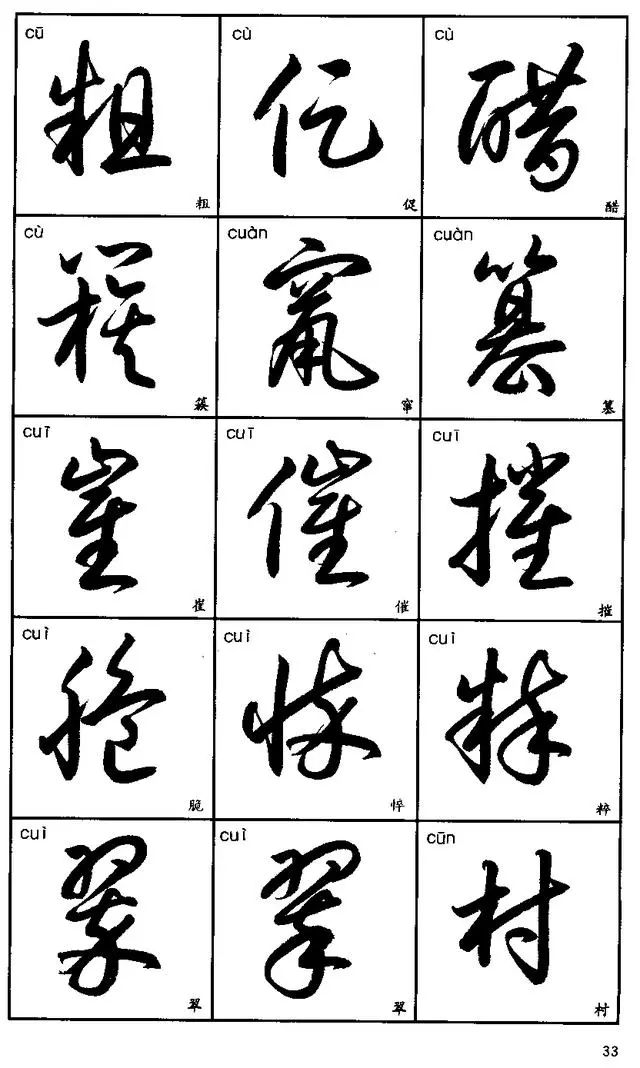 cū cù cù
粗 促 醋
粗 促 醋
cù cuàn cuàn
簇 竄 篡
簇 窜 篡
cuī cuī cuī
崔 催 摧
崔 催 摧
cuì cuì cuì
脆 悴 粹
脆 悴 粹
cuì cuì cūn
翠 翠 村
翠 翠 村
33